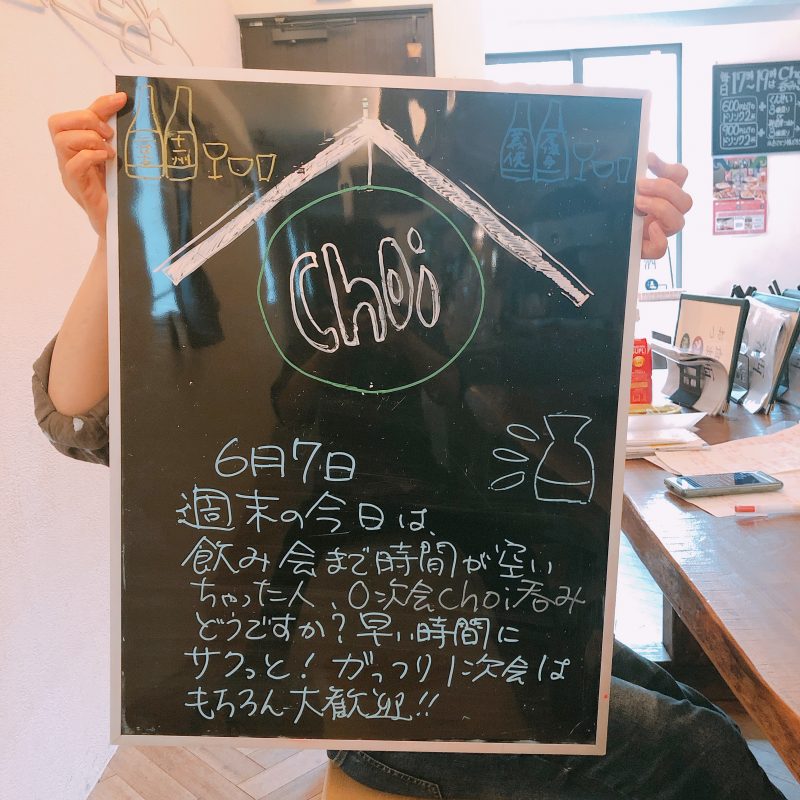 十二州
義侠
choi
6月7日
週末の今日は、
飲み会まで時間が空い
ちゃった人、0次会choi呑み
どうですか?早い時間に
サクっと!がっつり1次会は
もちろん大歓迎!!
毎日17時~19時は
600円
ドリンク2杯
900円
ドリンク2杯